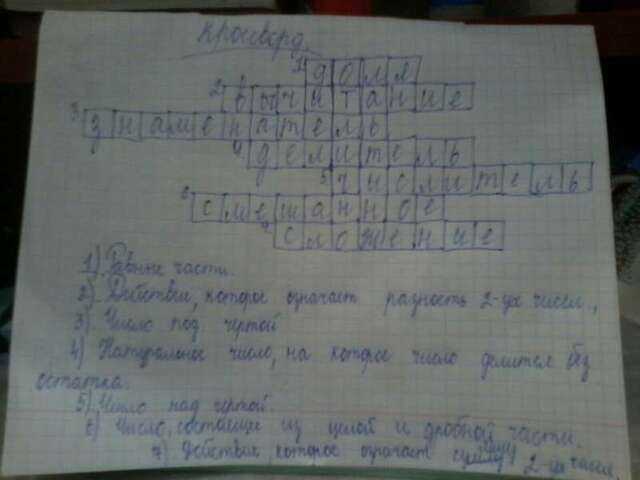 Кросворд
1 доля
2 вычитание
3 знаменатель
4 делитель
5 числитель
6 смешанное
7 сложение
1) Равные части.
2) Действие, которое означает разность 2-ух чисел.
3) Число под чертой
4) Натуральное число, на которое число делится без
остатка.
5) Число над чертой.
6) Число, состоящие из целой и дробной части.
7) Действие, которое означает сумму 2-ух чисел.